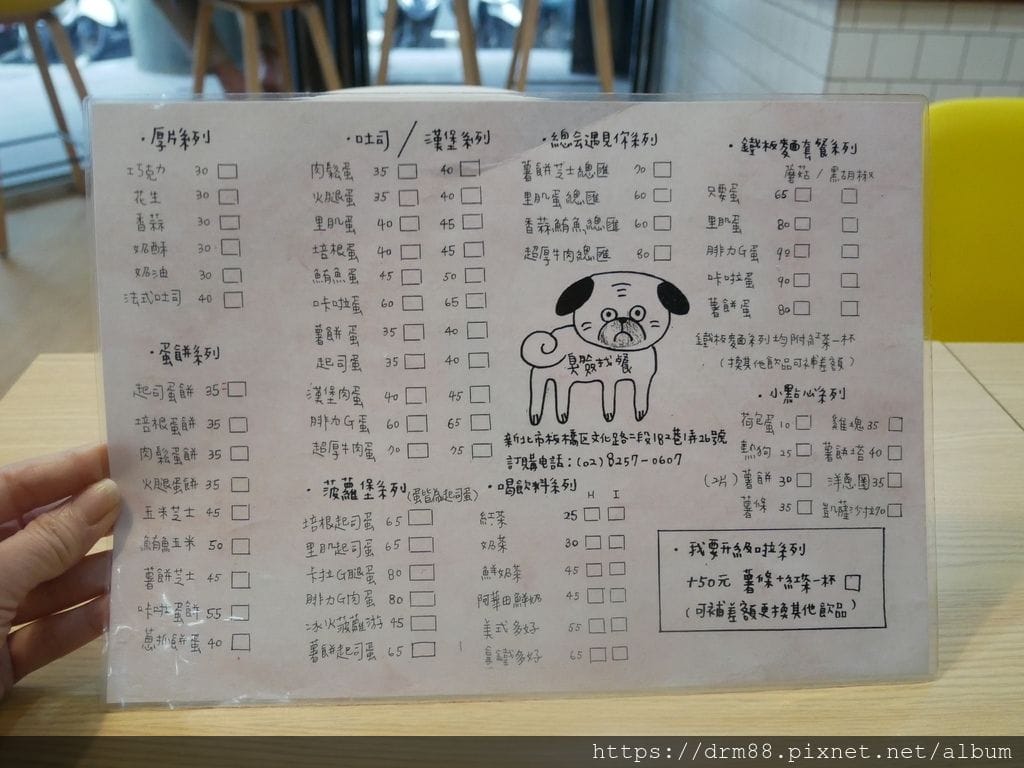 ·厚片系列
巧克力 30
花生 30
香蒜 30
奶酥 30
奶油 30
法式吐司 40
·蛋餅系列
起司蛋餅 35
培根蛋餅 35
肉鬆蛋餅 35
火腿蛋餅 35
玉米芝士 45
鮪魚玉米 50
薯餅芝士 45
咔啦蛋餅 55
蔥抓餅蛋 40
·吐司/漢堡系列
肉鬆蛋 35 40
火腿蛋 35 40
里肌蛋 40 45
培根蛋 40 45
鮪魚蛋 45 50
咔啦蛋 60 65
薯餅蛋 35 40
起司蛋 35 40
漢堡肉蛋 40 45
腓力G蛋 60 65
超厚牛肉蛋 70 75
·菠蘿堡系列(蛋皆為起司蛋)
培根起司蛋 65
里肌起司蛋 65
卡拉G腿蛋 80
腓力G肉蛋 80
冰火菠蘿游 45
薯餅起司蛋 65
·總会遇見你系列
薯餅芝士總匯 70
里肌蛋總匯 60
香蒜鮪魚總匯 60
超厚牛肉總匯 80
臭臉找餐
新北市板橋区文化路二段182巷1弄26號
訂購电話:(02)8257-0607
·喝飲料系列 H I
紅茶 25
奶茶 30
鮮奶茶 45
阿華田鮮奶 45
美式多好 55
拿鐵多好 65
·鐵板麵套餐系列
蘑菇/黑胡椒
只要蛋 65
里肌蛋 80
腓力G蛋 90
咔啦蛋 90
薯餅蛋 80
鐵板麵系列均附紅茶一杯
(換其他飲品可補差額)
·小點心系列
荷包蛋 10 雞塊 35
熱狗 25 薯餅塔 40
(2片)薯餅 30 洋蔥圈 35
薯條 35 凱薩沙拉 70
·我要升級啦系列
+50元 薯條+紅茶一杯
(可補差額更換其他飲品)
https://drm88.pixnet.net/album